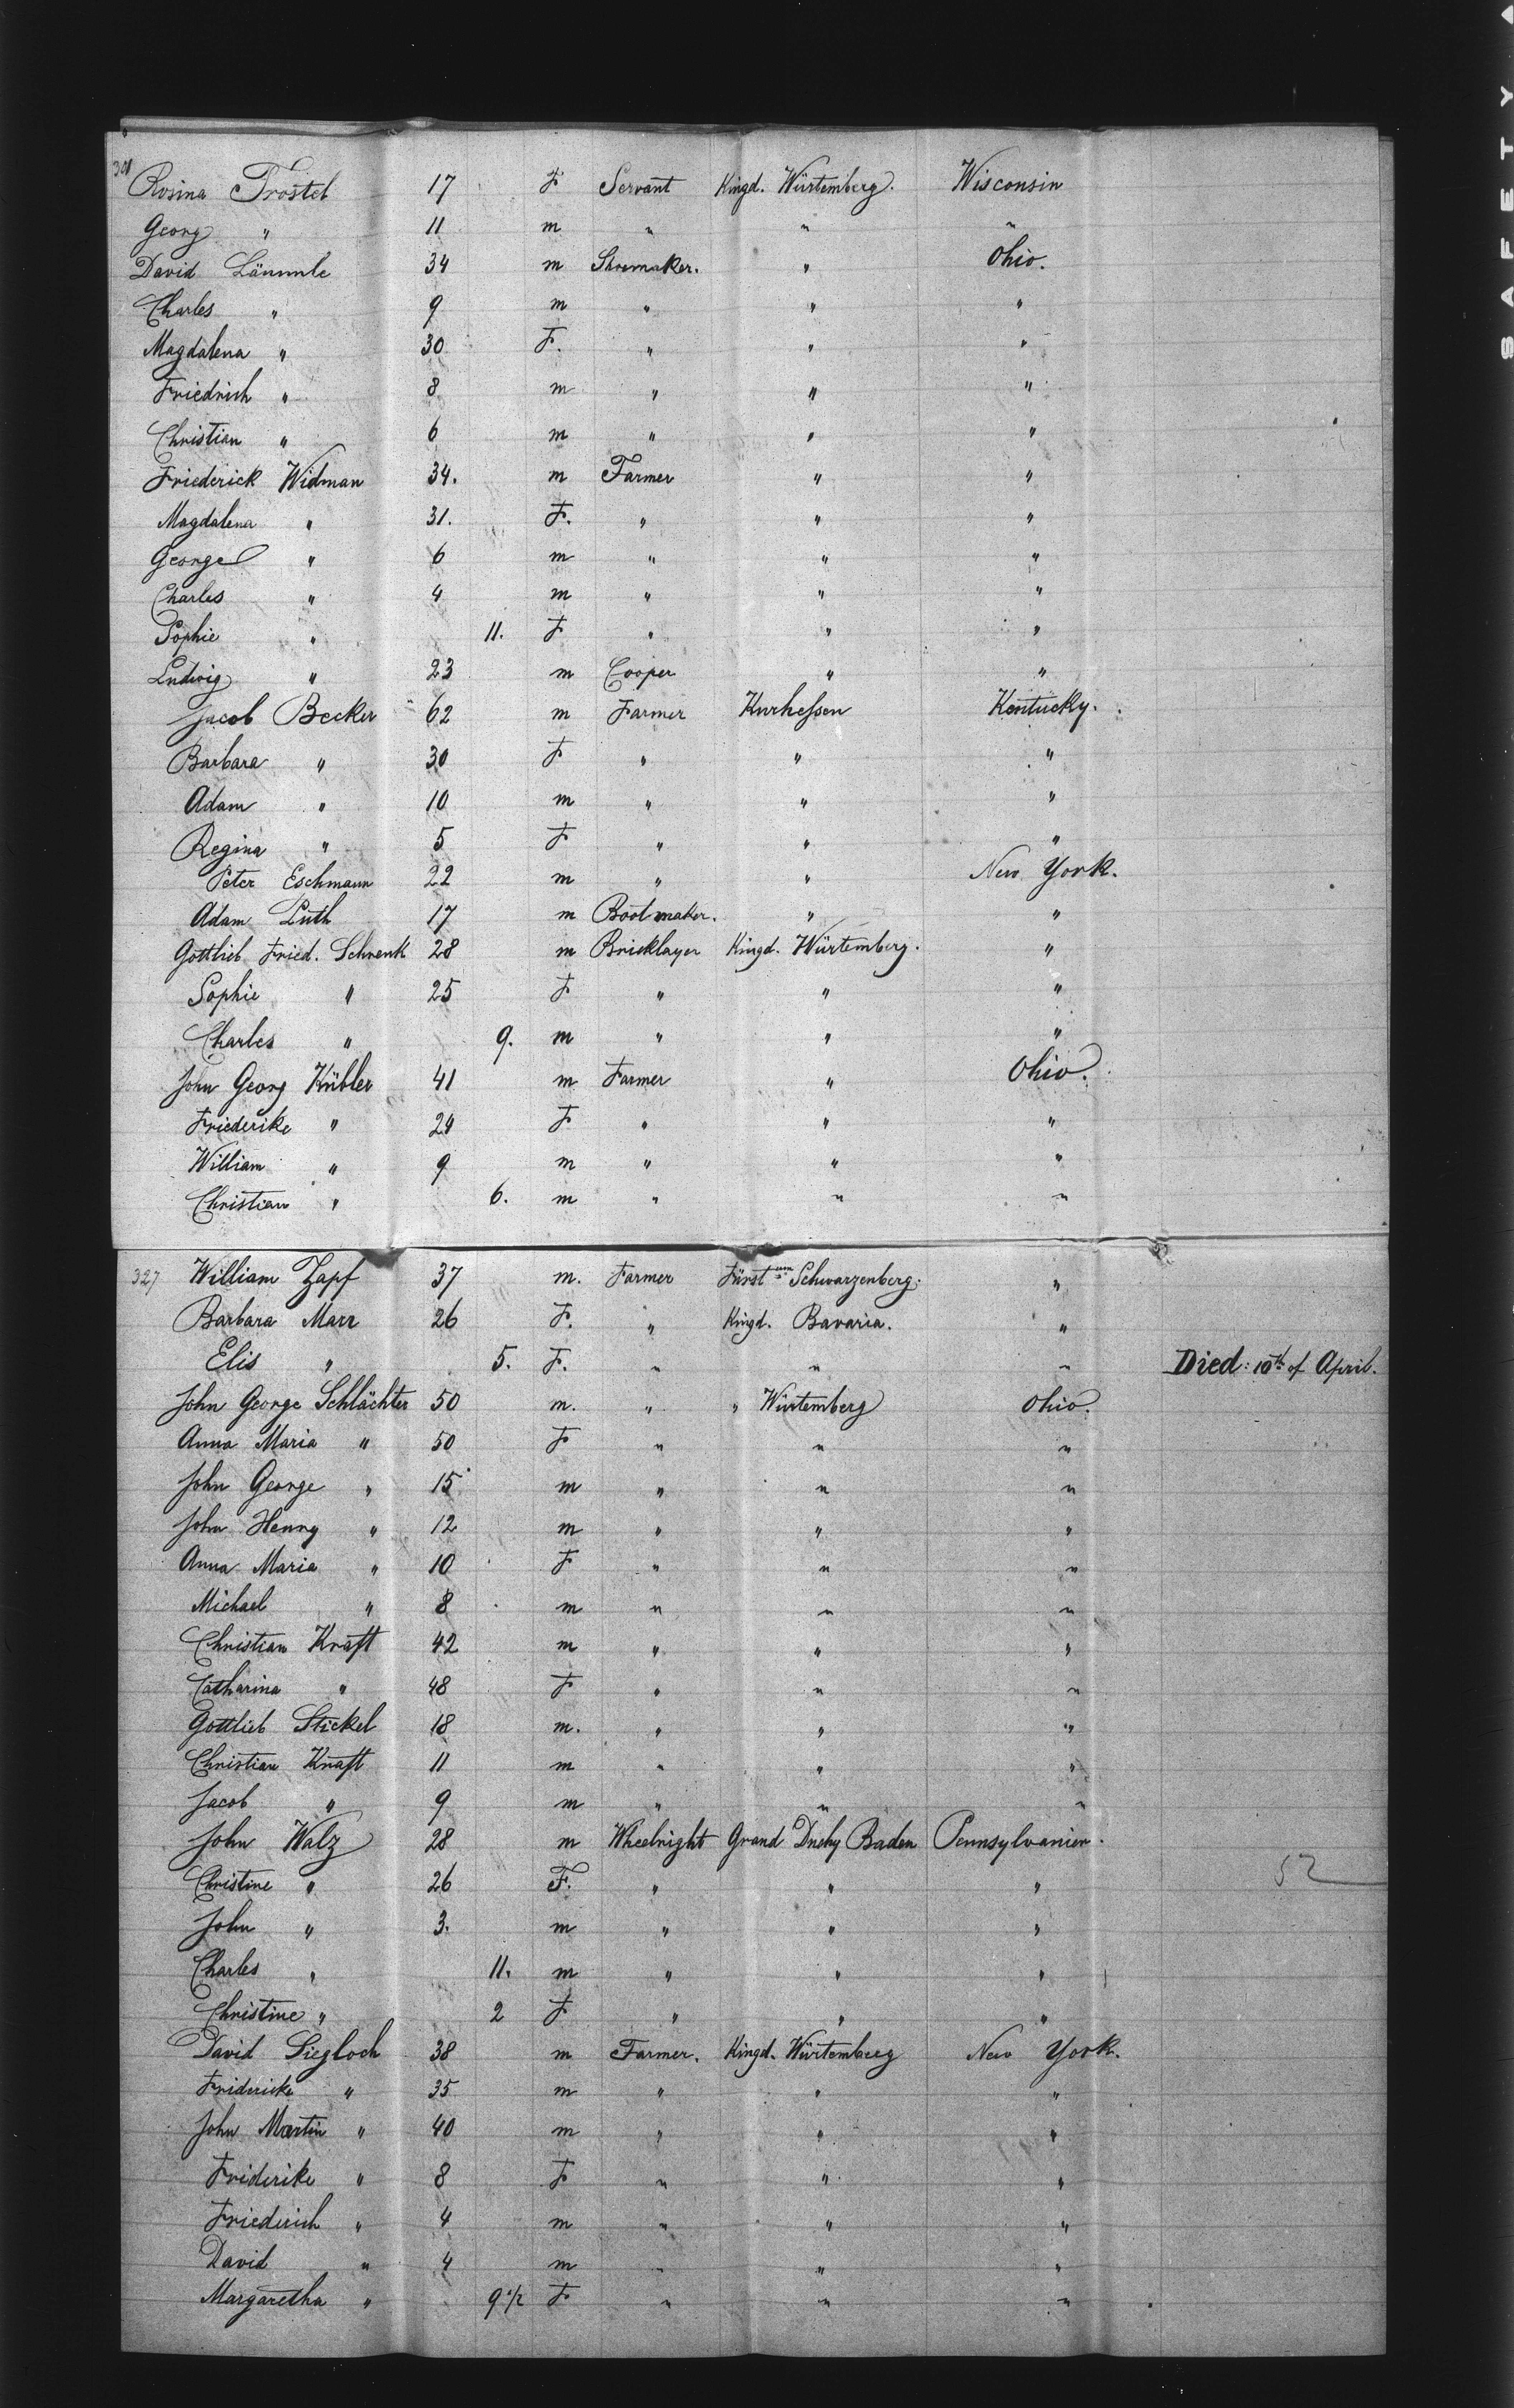 301 Rosina Trostel 17 F Servant Kingd. Würtemberg. Wisconsin
Georg " 11 m " " "
David Lämmle 34 m Shoemaker. " Ohio.
Charles " 9 m " " "
Magdalena " 30 F. " " "
Friedrich " 8 m " " "
Christian " 6 m " " "
Friederick Widman 34. m Farmer " "
Magdalena " 31. F. " " "
George " 6 m " " "
Charles " 4 m " " "
Sophie " 11. F " " "
Ludwig " 23 m Cooper " "
Jacob Becker 62 m Farmer Kurhessen Kentucky.
Barbara " 30 F " " "
Adam " 10 m " " "
Regina " 5 F " " "
Peter Eschmann 22 m " " New York.
Adam Luth 17 m Bootmaker. " "
Gottlieb Fried. Schrenk 28 m Bricklayer Kingd. Würtemberg. "
Sophie " 25 F " " "
Charles " 9. m " " "
John Georg Kübler 41 m Farmer " Ohio.
Friederike " 24 F " " "
William " 9 m " " "
Christian " 6. m " " "
327 William Zapf 37 m. Farmer Fürstum Schwarzenberg. "
Barbara Marr 26 F. " Kingd. Bavaria. "
Elis " 5. F. " " " Died: 10th of April.
John George Schlächter 50 m. " " Würtemberg Ohio.
Anna Maria " 50 F " " "
John George " 15 m " " "
John Henry " 12 m " " "
Anna Maria " 10 F " " "
Michael " 8 m " " "
Christian Kraft 42 m " " "
Catharina " 48 F " " "
Gottlieb Stickel 18 m. " " "
Christian Kraft 11 m " " "
Jacob " 9 m " " "
John Walz 28 m Wheelright Grand Duchy Baden Pennsylvanien.
Christine " 26 F. " " "
52
John " 3. m " " "
Charles " 11. m " " "
Christine " 2 F " " "
David Siegloch 38 m Farmer. Kingd. Würtemberg New York.
Fridericke " 35 m " " "
John Martin " 40 m " " "
Friderike " 8 F " " "
Friederich " 4 m " " "
David " 4 m " " "
Margaretha " 9 1/2 F " " "
SAFETY